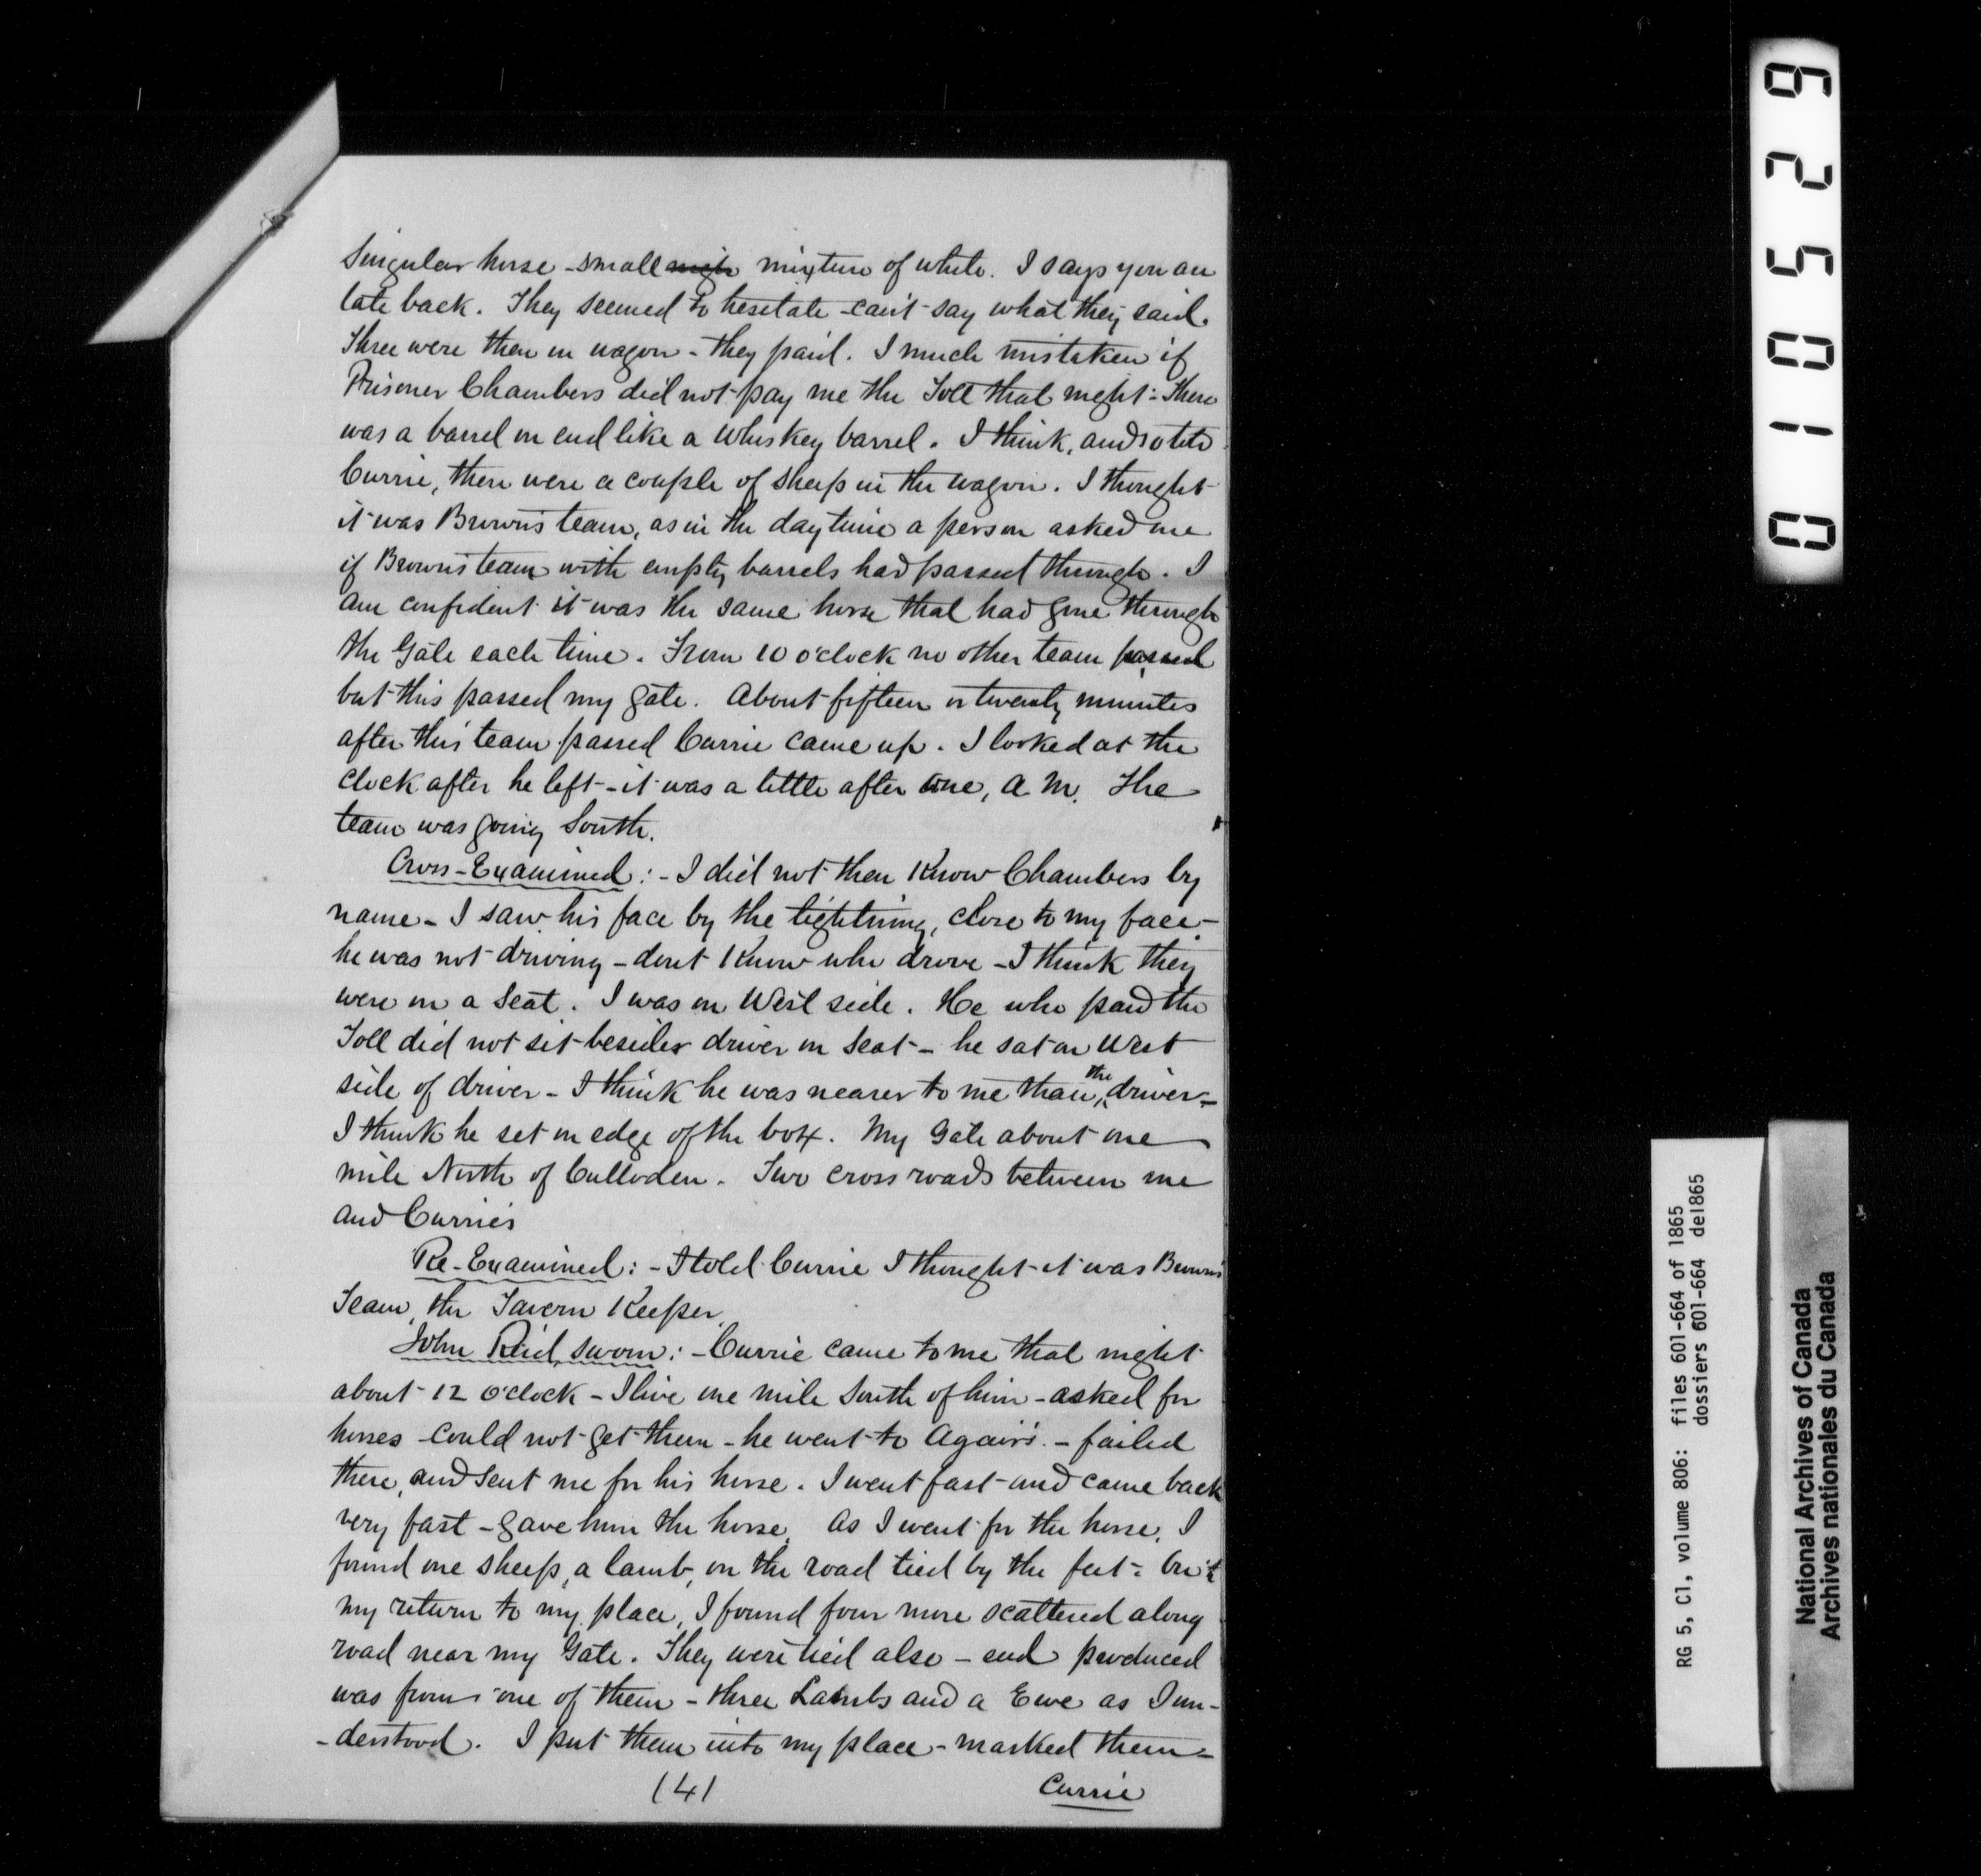 Singular horse - small migh mixture of white. I says you are
late back. They seemed to hesitate - can't say what they said.
Three were then in wagon - they paid. I much mistaken if
Prisoner Chambers did not pay me the Toll that night - There
was a barrel on end like a whiskey barrel. I think, and so told
Currie, there were a couple of sheep in the wagon. I thought
it was Brown's team, as in the daytime a person asked me
if Brown's team with empty barrels had passed through. I
am confident it was the same horse that had gone through
the Gate each time. From 10 o'clock no other team passed
but this passed my gate. About fifteen or twenty minutes
after this team passed Currie came up. I looked at the
clock after he left - it was a little after one, A.M. The
team was going South.
Cross-Examined: - I did not then Know Chambers by
name - I saw his face by the lightning, close to my face -
he was not driving - dont Know who drove - I think they
were on a Seat. I was on West side. He who paid the
Toll did not sit besides driver on Seat - he sat on West
side of driver - I think he was nearer to me than the driver -
I think he set on edge of the box. My Gate about one
mile North of Culloden. Two cross roads between me
and Currie's
Re-Examined: - I told Currie I thought it was Brown's
Team, the Tavern Keeper.
John Reid, sworn: - Currie came to me that night
about 12 o'clock - I live one mile South of him - asked for
horses - could not get them - he went to Agair's - failed
there, and sent me for his horse. I went fast - and came back
very fast - gave him the horse. As I went for the horse, I
found one sheep, a lamb, on the road tied by the feet -
my return to my place, I found four more scattered along
road near my Gate. They were tied also - end produced
was from one of them - three Lambs and a Ewe as I un-
-derstood. I put them into my place - marked them -
(4)
Currie
0 1 0 5 2 9
RG 5, C1, volume 806: files 601-664 of 1865
dossiers 601-664 de1865
National Archives of Canada
Archives nationales du Canada